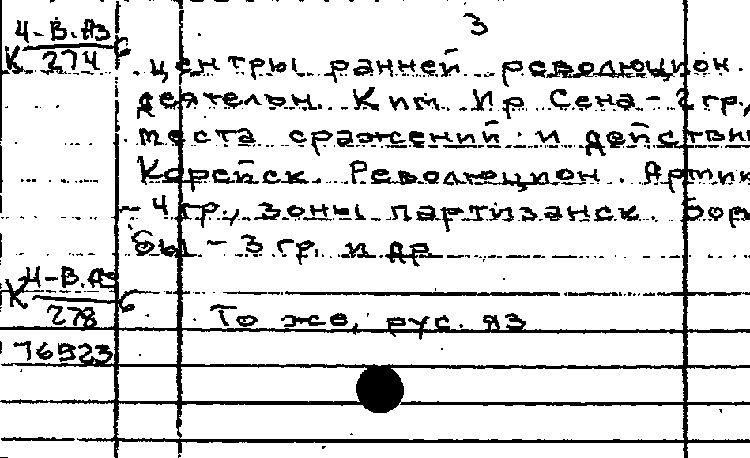 3
Ч-В.Аз
К 274 6
центры ранней революцион.
деятельн. Ким Ир Сена - 2 гр.,
места сражений и действи
Корейск. Революцион. Арми
- 4 гр., зоны партизанск. бор
бы - 3 гр. и др
Ч-В.Аз
К 278 6
То же, рус. яз
76523